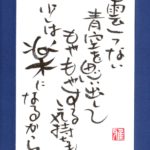 雲一つない
青空を思い出して
もやもやする気持も
少しは楽になるから